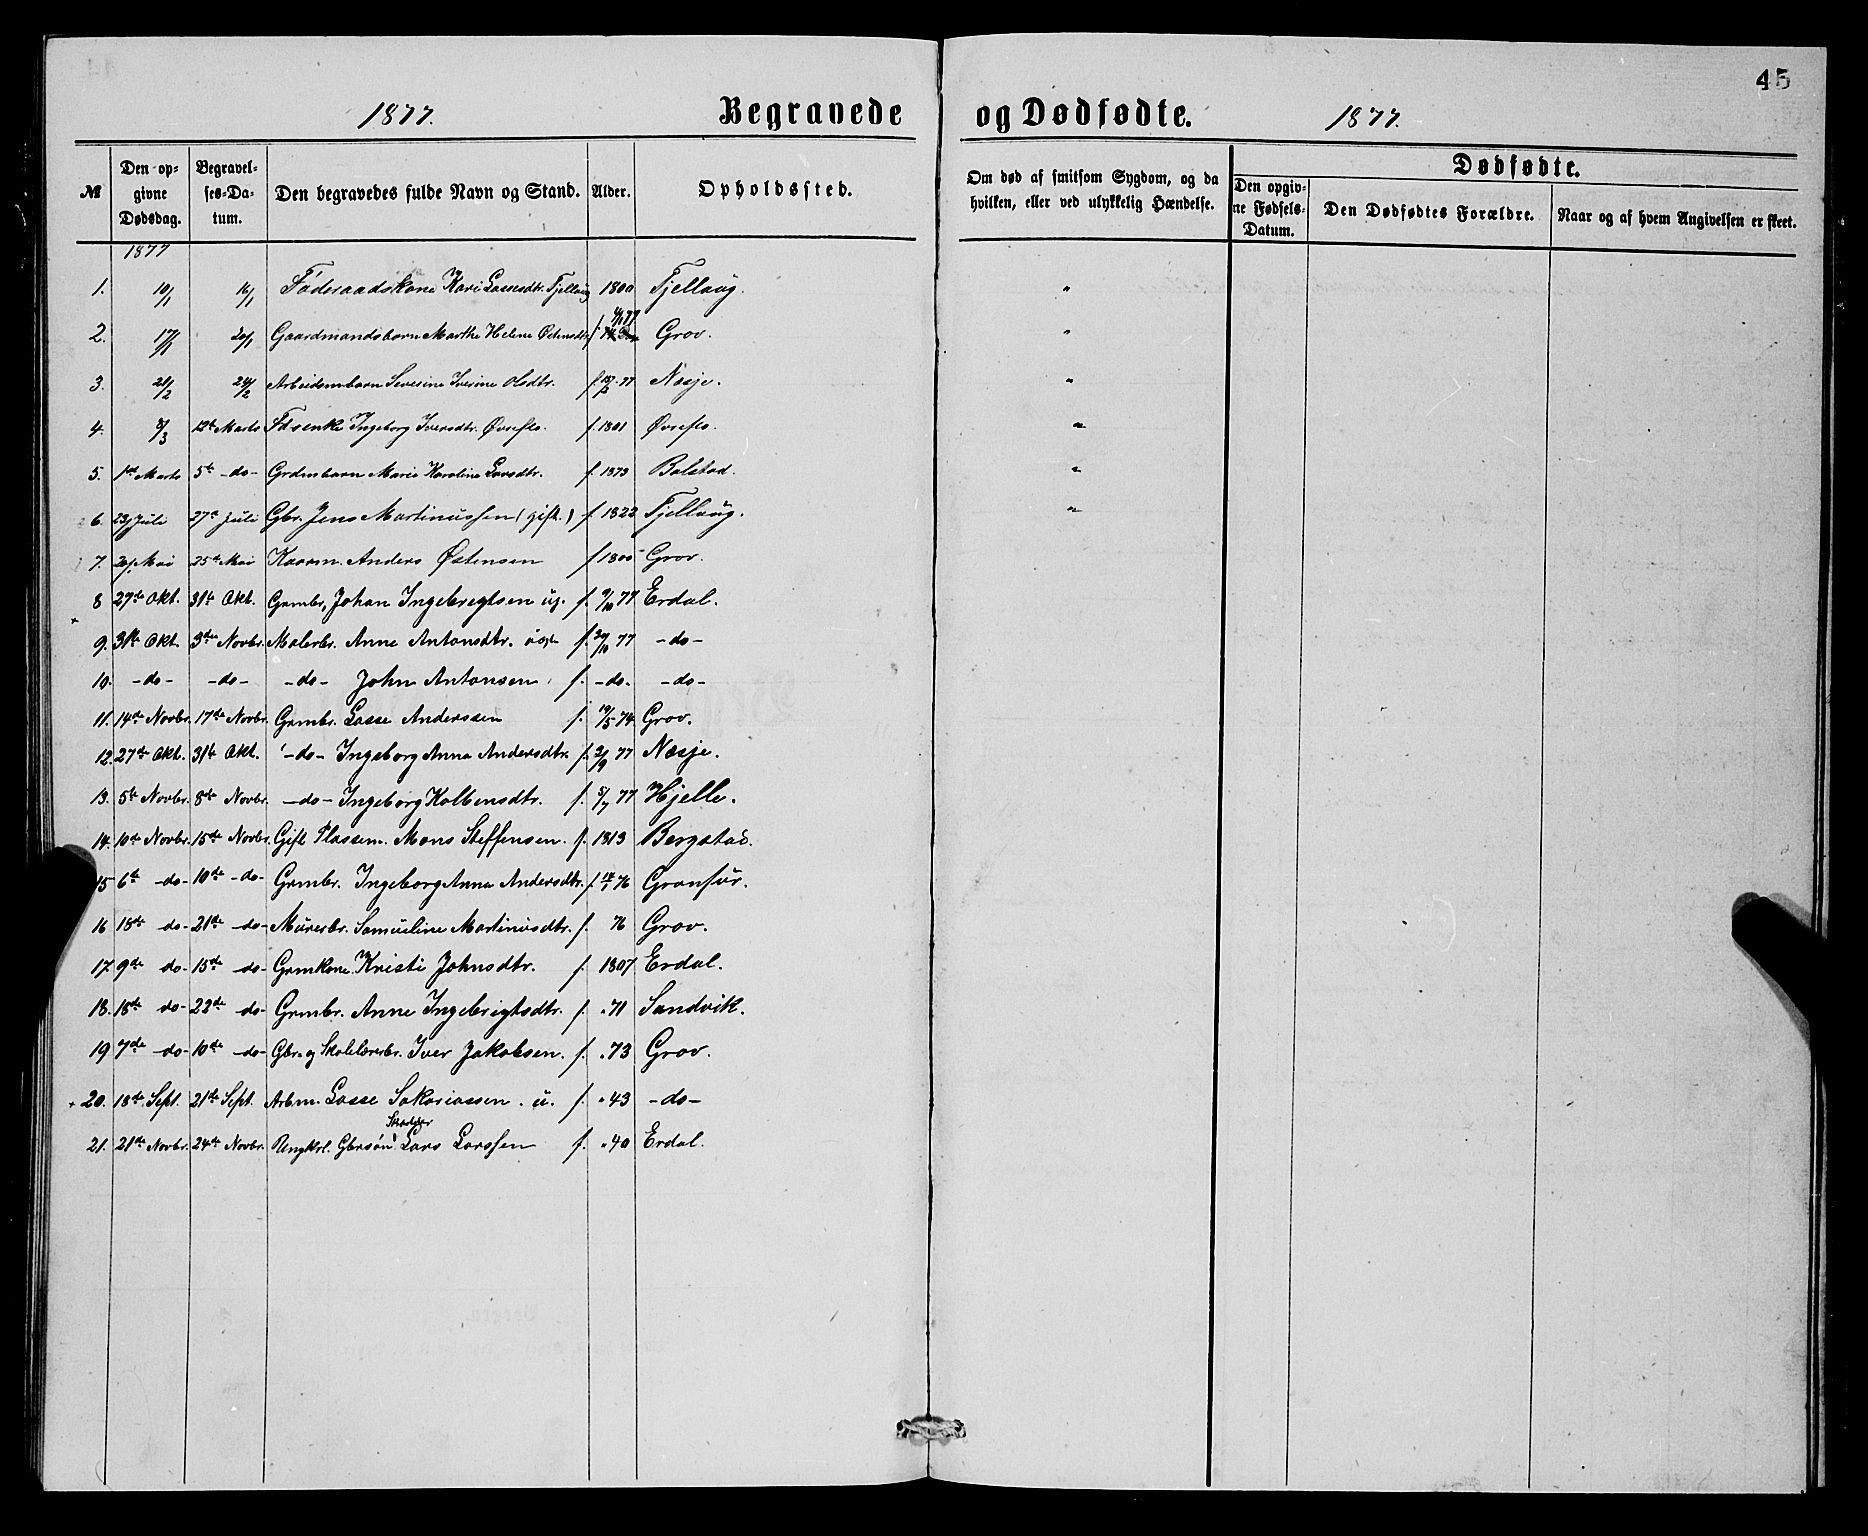 45
1877. Begravede og Dødfødte. 1877.
№ Den opgivne Dødsdag. Begravelses-Datum. Den begravedes fulde Navn og Stand. Alder. Opholdssted. Om død af smitsom Sygdom, og da hvilken, eller ved ulykkelig Hændelse. Dødfødte. Den opgivne Fødsels-Datum. Den Dødfødtes Forældre. Naar og af hvem Angivelsen er skeet.
1877
1. 10/1 16/1 Føderaadskone Kari Lassesdtr. Fjellaug 1800 Fjellaug. "
2. 17/1 20/1 Gaardmandsbarn Marthe Helene Østensdtr. Grov. "
3. 21/2 24/2 Arbeidsmbarn Severine Iverine Olsdtr. f. 77 Næsje. "
4. 8/3 12te Marts Ingeborg Iversdtr. Øvrefls. f. 1801 Øvrefls. "
5. 1ste Marts 5te -do- Grdmbarn Marie Karoline Larsdtr. f. 1873 Bolstad. "
6. 23/Juli 27de Juli Gbr. Jens Martinussen (gift.) f. 1822 Fjellaug. "
7. 20/Mai 25de Mai Kaarm. Anders Østensen f 1800 Grov.
8 27de Okt. 31te Okt. Grmbr, Johan Ingebregtsen f. 9/10 77 Erdal.
9. 31te Okt. 3die Novbr. Malerbr. Anne Antonsdtr. f. 29/10 77 -do-
10. -do- -do- -do- John Antonsen, f. -do- -do-
11. 14de Novbr. 17de Novbr. Grmbr. Lasse Anderssen f. 19/5 74 Grov.
12. 27de Okt. 31te Okt. -do- Ingeborg Anna Andersdtr. f. 2/9 77 Næsje.
13. 5te Novbr. 8de Novbr. -do- Ingeborg Kolbensdtr. f. 5/7 77 Hjelle.
14. 10de Novbr. 15de Novbr. Gift Plassem. Mons Steffensen. f. 1813 Bergstad.
15 6te -do- 10de -do- Grmbr. Ingeborg Anna Andersdtr. f. 76 Gronfur.
16 18de do- 21de -do- Murerbr. Samueline Martinusdtr. f. 76 Grov.
17. 9de do- 15de do- Grmkone Kristi Johnsdtr. f. 1807 Erdal.
18. 18de do- 22de do- Grmbr. Anne Ingebrigtsdtr. f. "71 Sandvik.
19 7de -do- 10de -do- Gbr. og Skolelærerbr. Iver Jakobsen. f. "73 Grov.
20. 18de Sept. 21de Sept. Arbm. Lasse Sakariassen. u. f. "43 -do-
21. 21de Novbr. 24de Novbr. Ungkrl. Gbrsøn Lars Larssen f. "40 Erdal.